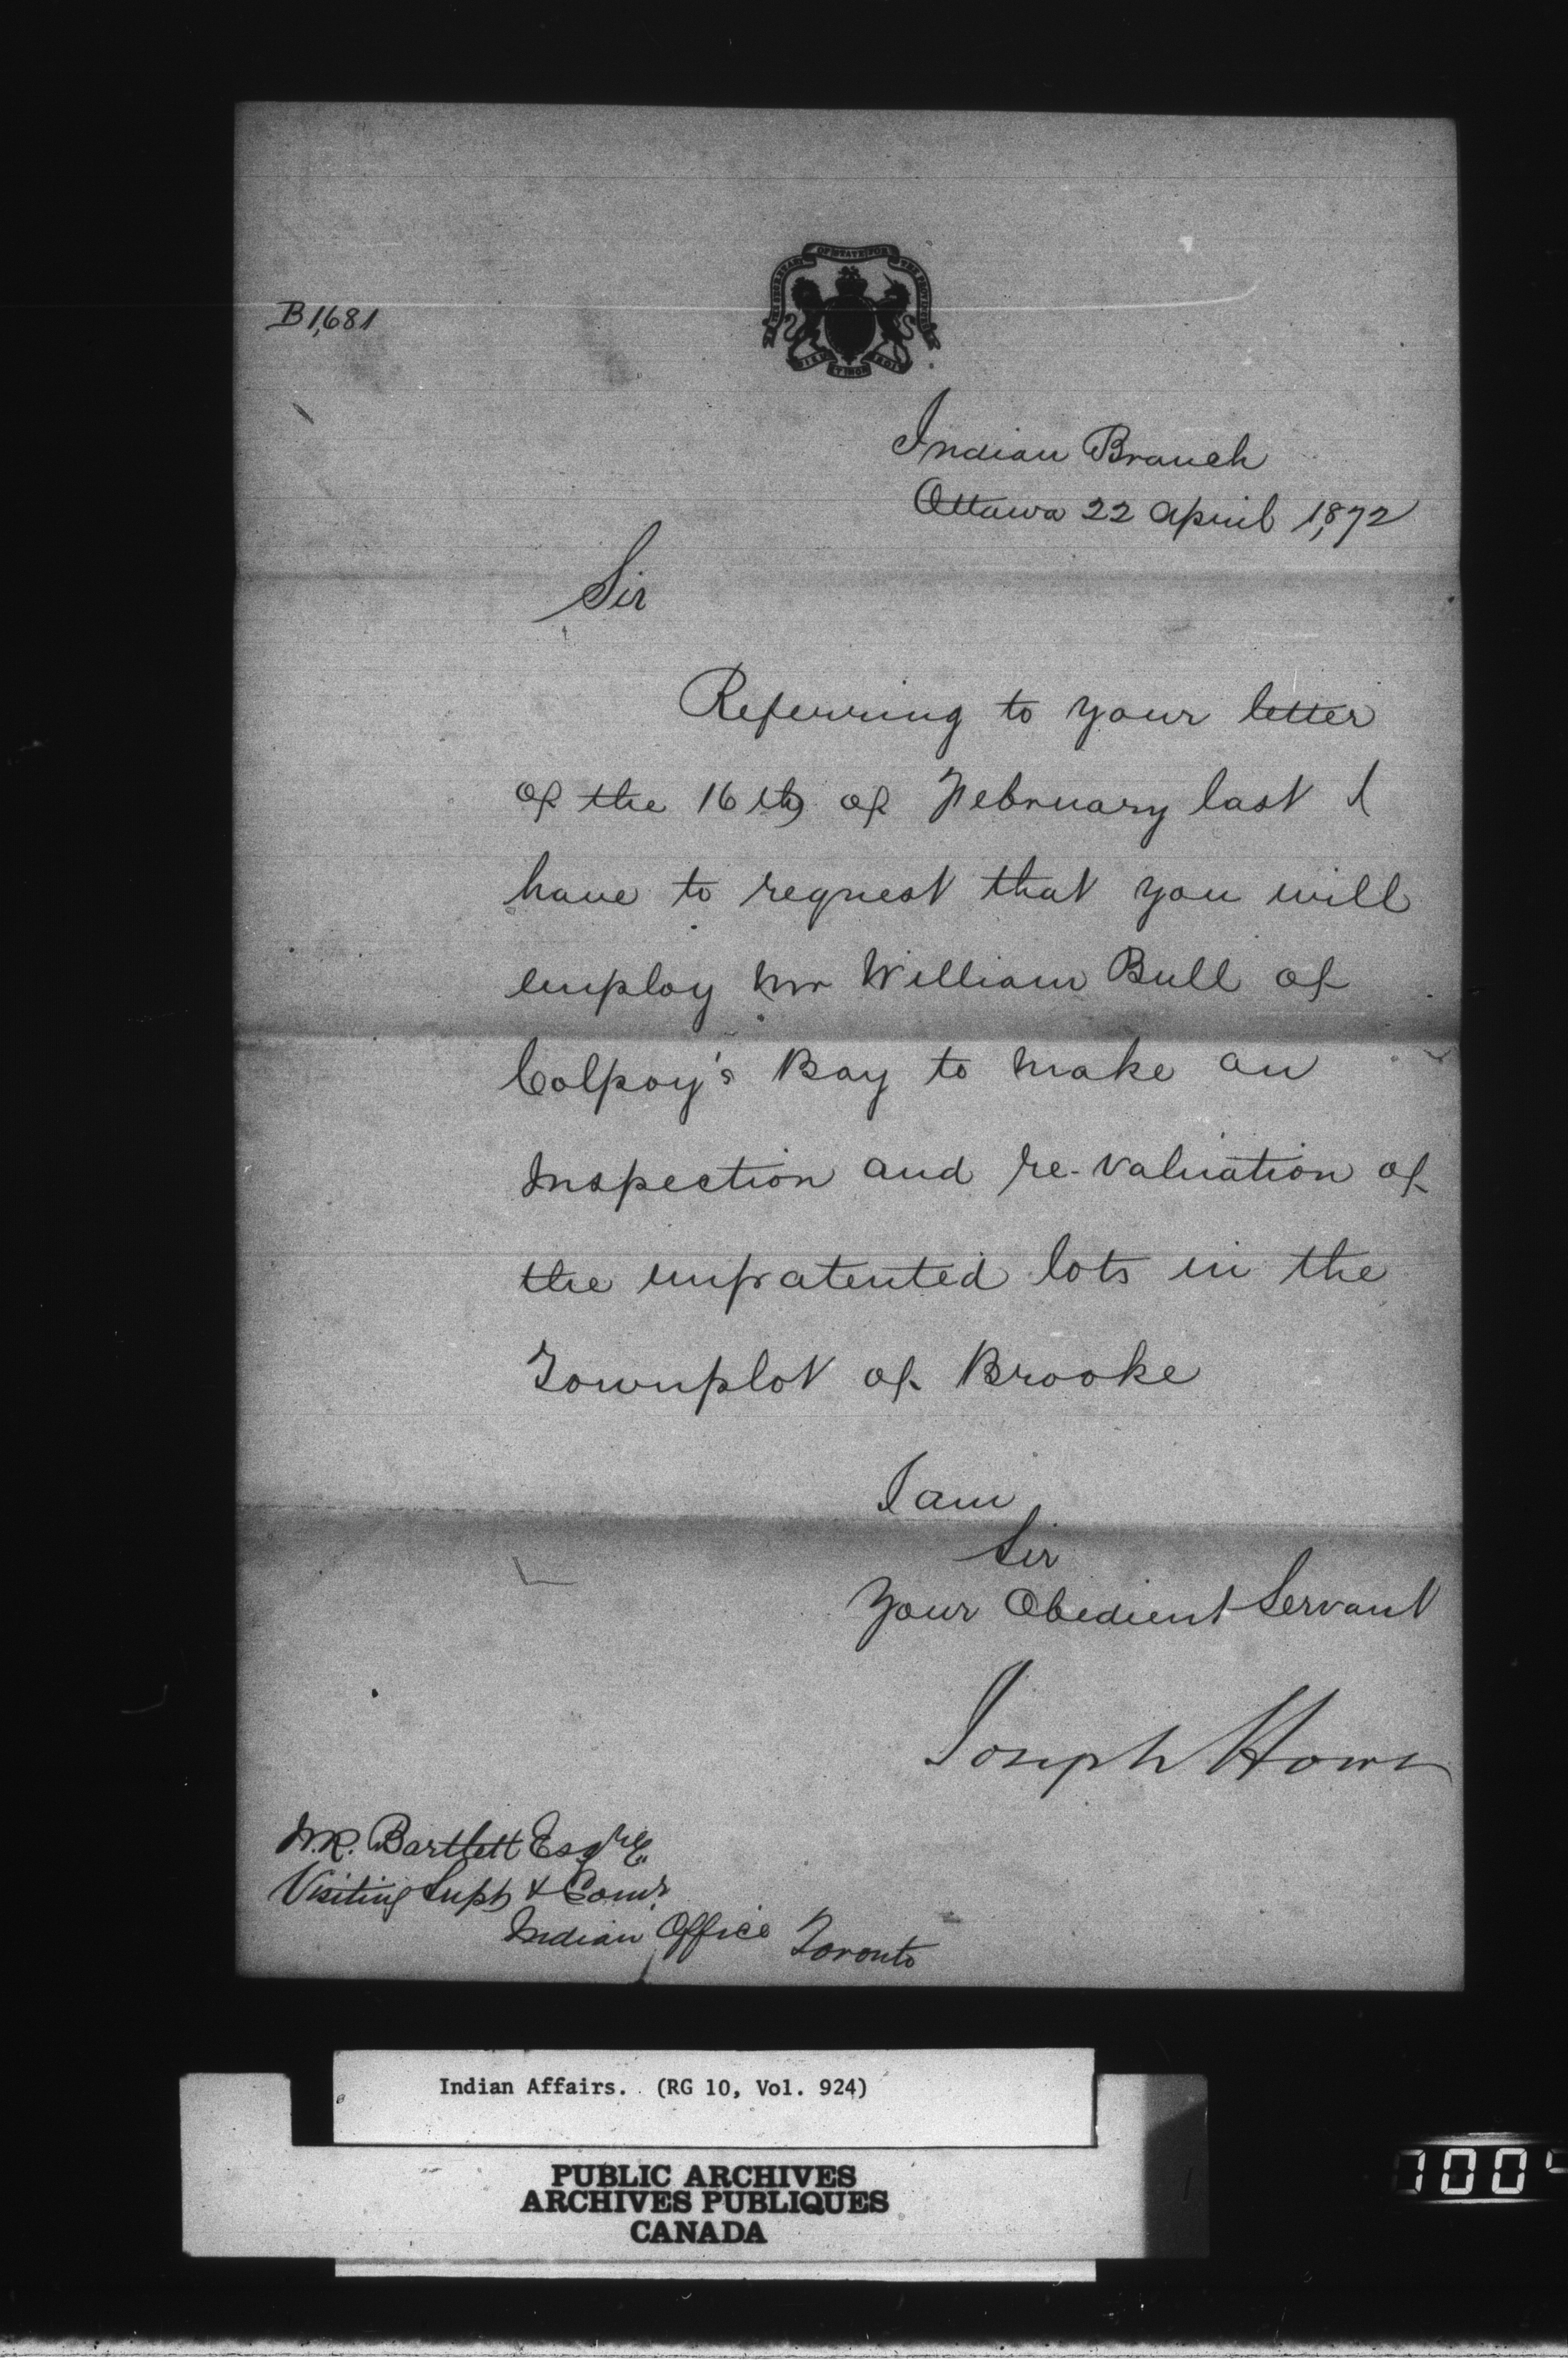 B1,681
THE SECRETARY OF STATE FOR THE PROVINCES
Indian Branch
Ottawa 22 April 1,872
Sir
Referring to your letter
of the 16th of February last I
have to request that you will
employ Mr William Bull of
Colpoy's Bay to make an
Inspection and re-valuation of
the unpatented lots in the
Townplot of Brooke
I am
Sir
Your Obedient Servant
Joseph Howe
W.R. Bartlett Esqre
Visiting Supt & Comr
Indian Office Toronto
Indian Affairs. (RG 10, Vol. 924)
PUBLIC ARCHIVES
ARCHIVES PUBLIQUES
CANADA